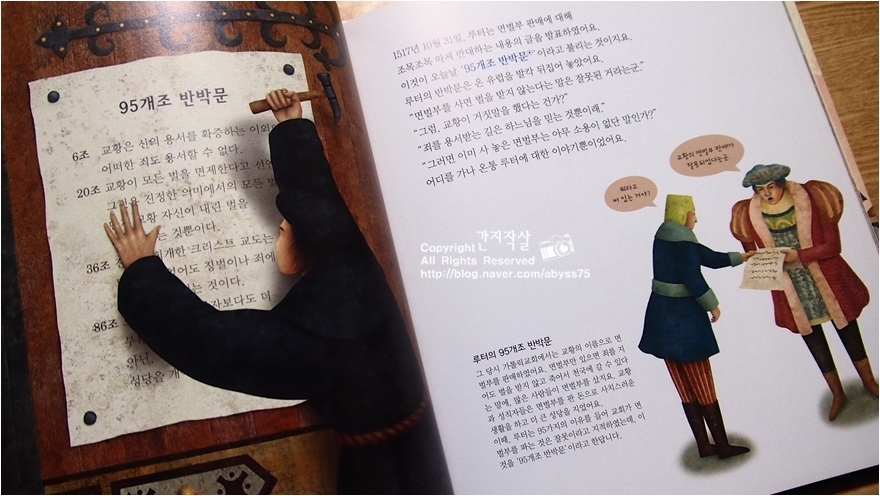 95개조 반박문
6조 교황은 신의 용서를 확증하는 이외에
어떠한 죄도 용서할 수 없다.
20조 교황이 모든 벌을 면제한다고 선언
그것은 진정한 의미에서의 모든 벌
교황 자신이 내린 벌을
는 것뿐이다.
36조 진 회개한 크리스트 교도는
없어도 징벌이나 죄에
는 것이다.
자보다도 더
86조
아닌,
성당을 개
1517년 10월 31일, 루터는 면벌부 판매에 대해
조목조목 따져 반대하는 내용의 글을 발표하였어요.
이것이 오늘날 '95개조 반박문'이라고 불리는 것이지요.
루터의 반박문은 온 유럽을 발칵 뒤집어 놓았어요.
"면벌부를 사면 벌을 받지 않는다는 말은 잘못된 거라는군."
"그럼, 교황이 거짓말을 했다는 건가?"
"죄를 용서받는 길은 하느님을 믿는 것뿐이래."
"그러면 이미 사 놓은 면벌부는 아무 소용이 없단 말인가?"
어디를 가나 온통 루터에 대한 이야기뿐이었어요.
뭐라고
써 있는 거야?
교황의 면벌부 판매가
잘못되었다는군.
간지작살
Copyright
All Rights Reserved
http://blog.naver.com/abyss75
루터의 95개조 반박문
그 당시 가톨릭교회에서는 교황의 이름으로 면
벌부를 판매하였어요. 면벌부만 있으면 죄를 지
어도 벌을 받지 않고 죽어서 천국에 갈 수 있다
는 말에, 많은 사람들이 면벌부를 샀지요. 교황
과 성직자들은 면벌부를 판 돈으로 사치스러운
생활을 하고 더 큰 성당을 지었어요.
이때, 루터는 95가지의 이유를 들어 교회가 면
벌부를 파는 것은 잘못이라고 지적하였는데, 이
것을 '95개조 반박문'이라고 한답니다.